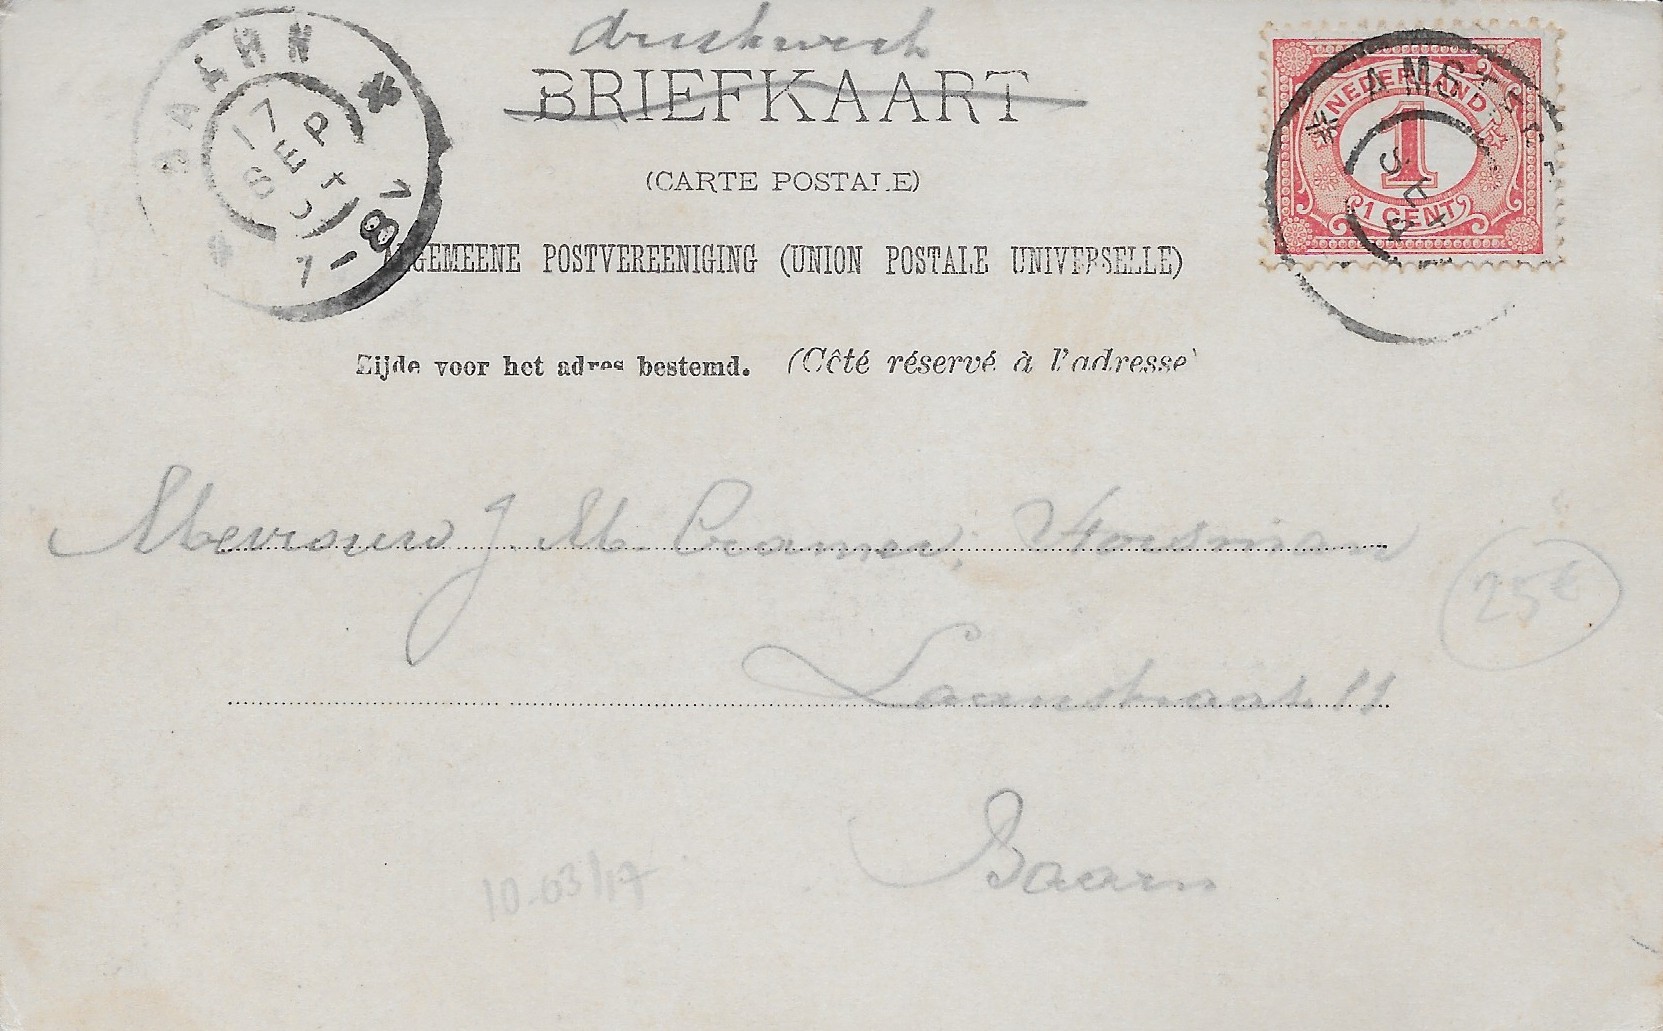 drukwerk
BRIEFKAART
(CARTE POSTALE)
ALGEMEENE POSTVEREENIGING (UNION POSTALE UNIVERSELLE)
Zijde voor het adres bestemd. (Côté réservé à l'adresse)
BAARN
17
SEP
7-8
AMSTER
SEP
NEDERLAND
1
1 CENT
Mevrouw J. M. Cramer,
25€
Laanstraat 11
Baarn
10-03/17